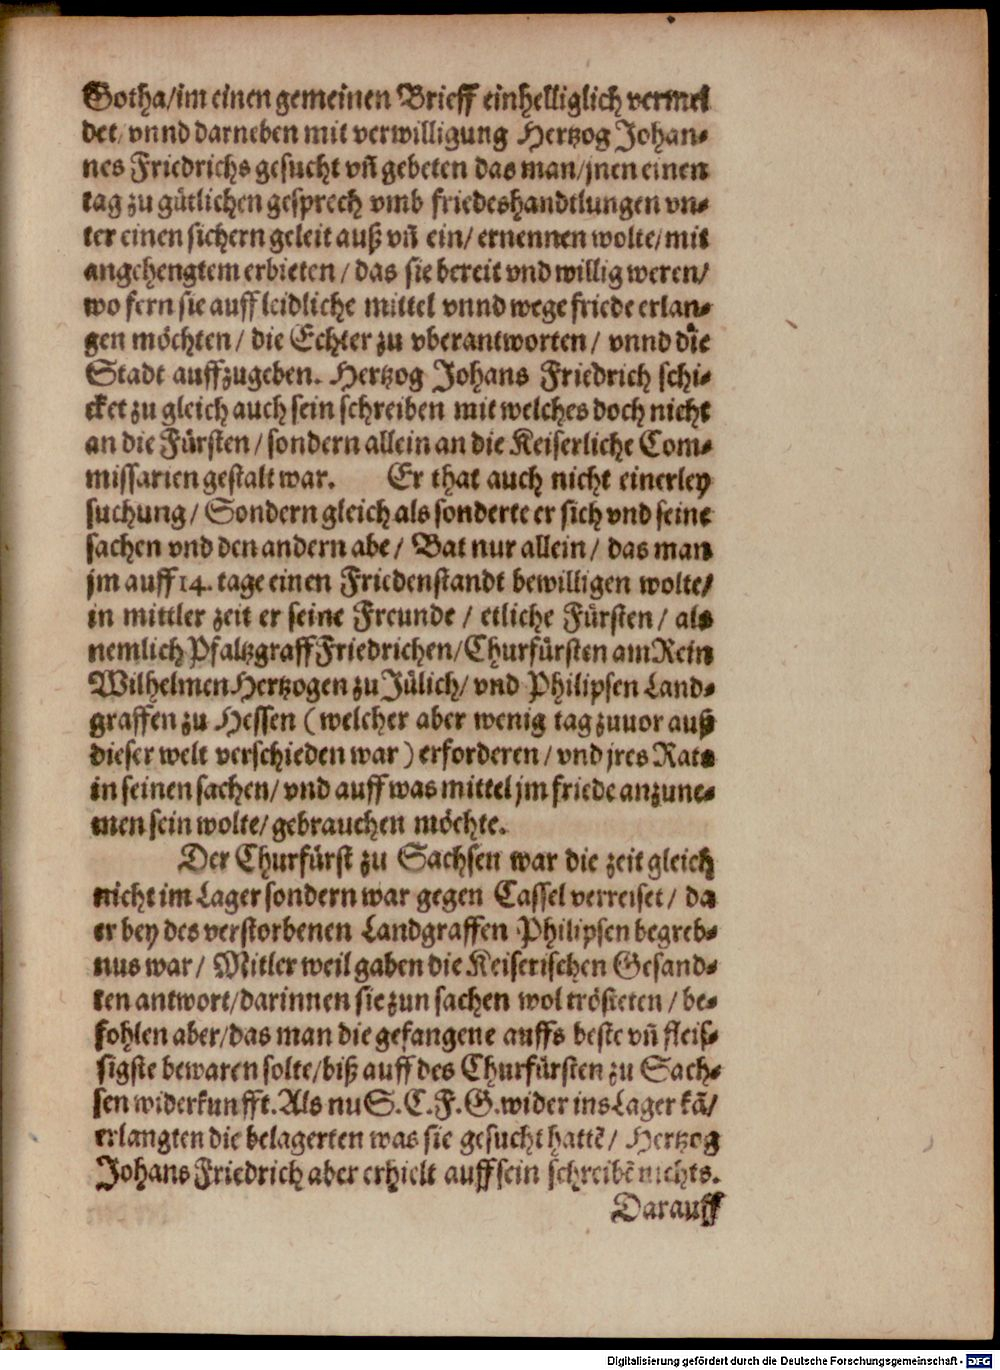 Gotha/im einen gemeinen Brieff einhelliglich vermel
det/ vnnd darneben mit verwilligung Hertzog Johan-
nes Friedrichs gesucht vñ gebeten das man/jnen einen
tag zu gütlichen gesprech vmb friedeshandtlungen vn-
ter einen sichern geleit auß vñ ein/ ernennen wolte/ mit
angehengtem erbieten / das sie bereit vnd willig weren/
wo fern sie auff leidliche mittel vnnd wege friede erlan-
gen möchten / die Echter zu vberantworten / vnnd die
Stadt auffzugeben. Hertzog Johans Friedrich schi-
cket zu gleich auch sein schreiben mit welches doch nicht
an die Fürsten / sondern allein an die Keiserliche Com-
missarien gestalt war. Er that auch nicht einerley
suchung / Sondern gleich als sonderte er sich vnd seine
sachen vnd den andern abe / Bat nur allein / das man
jm auff 14. tage einen Friedenstandt bewilligen wolte/
in mittler zeit er seine Freunde / etliche Fürsten / als
nemlich Pfaltzgraff Friedrichen/ Churfürsten am Rein
Wilhelmen Hertzogen zu Jülich/ vnd Philipsen Land-
graffen zu Hessen (welcher aber wenig tag zuuor auß
dieser welt verschieden war) erforderen / vnd jres Rats
in seinen sachen/ vnd auff was mittel jm friede anzune-
men sein wolte/ gebrauchen möchte.
Der Churfürst zu Sachsen war die zeit gleich
nicht im Lager sondern war gegen Cassel verreiset / da
er bey des verstorbenen Landgraffen Philipsen begreb-
nus war / Mitler weil gaben die Keiserischen Gesand-
ten antwort/darinnen sie zun sachen wol trösteten / be-
fohlen aber/das man die gefangene auffs beste vñ fleis-
sigste bewaren solte/biß auff des Churfürsten zu Sach-
sen widerkunfft. Als nu S. C. F. G. wider ins Lager kã/
erlangten die belagerten was sie gesucht hattẽ / Hertzog
Johans Friedrich aber erhielt auff sein schreibẽ nichts.
Darauff
Digitalisierung gefördert durch die Deutsche Forschungsgemeinschaft - DFG